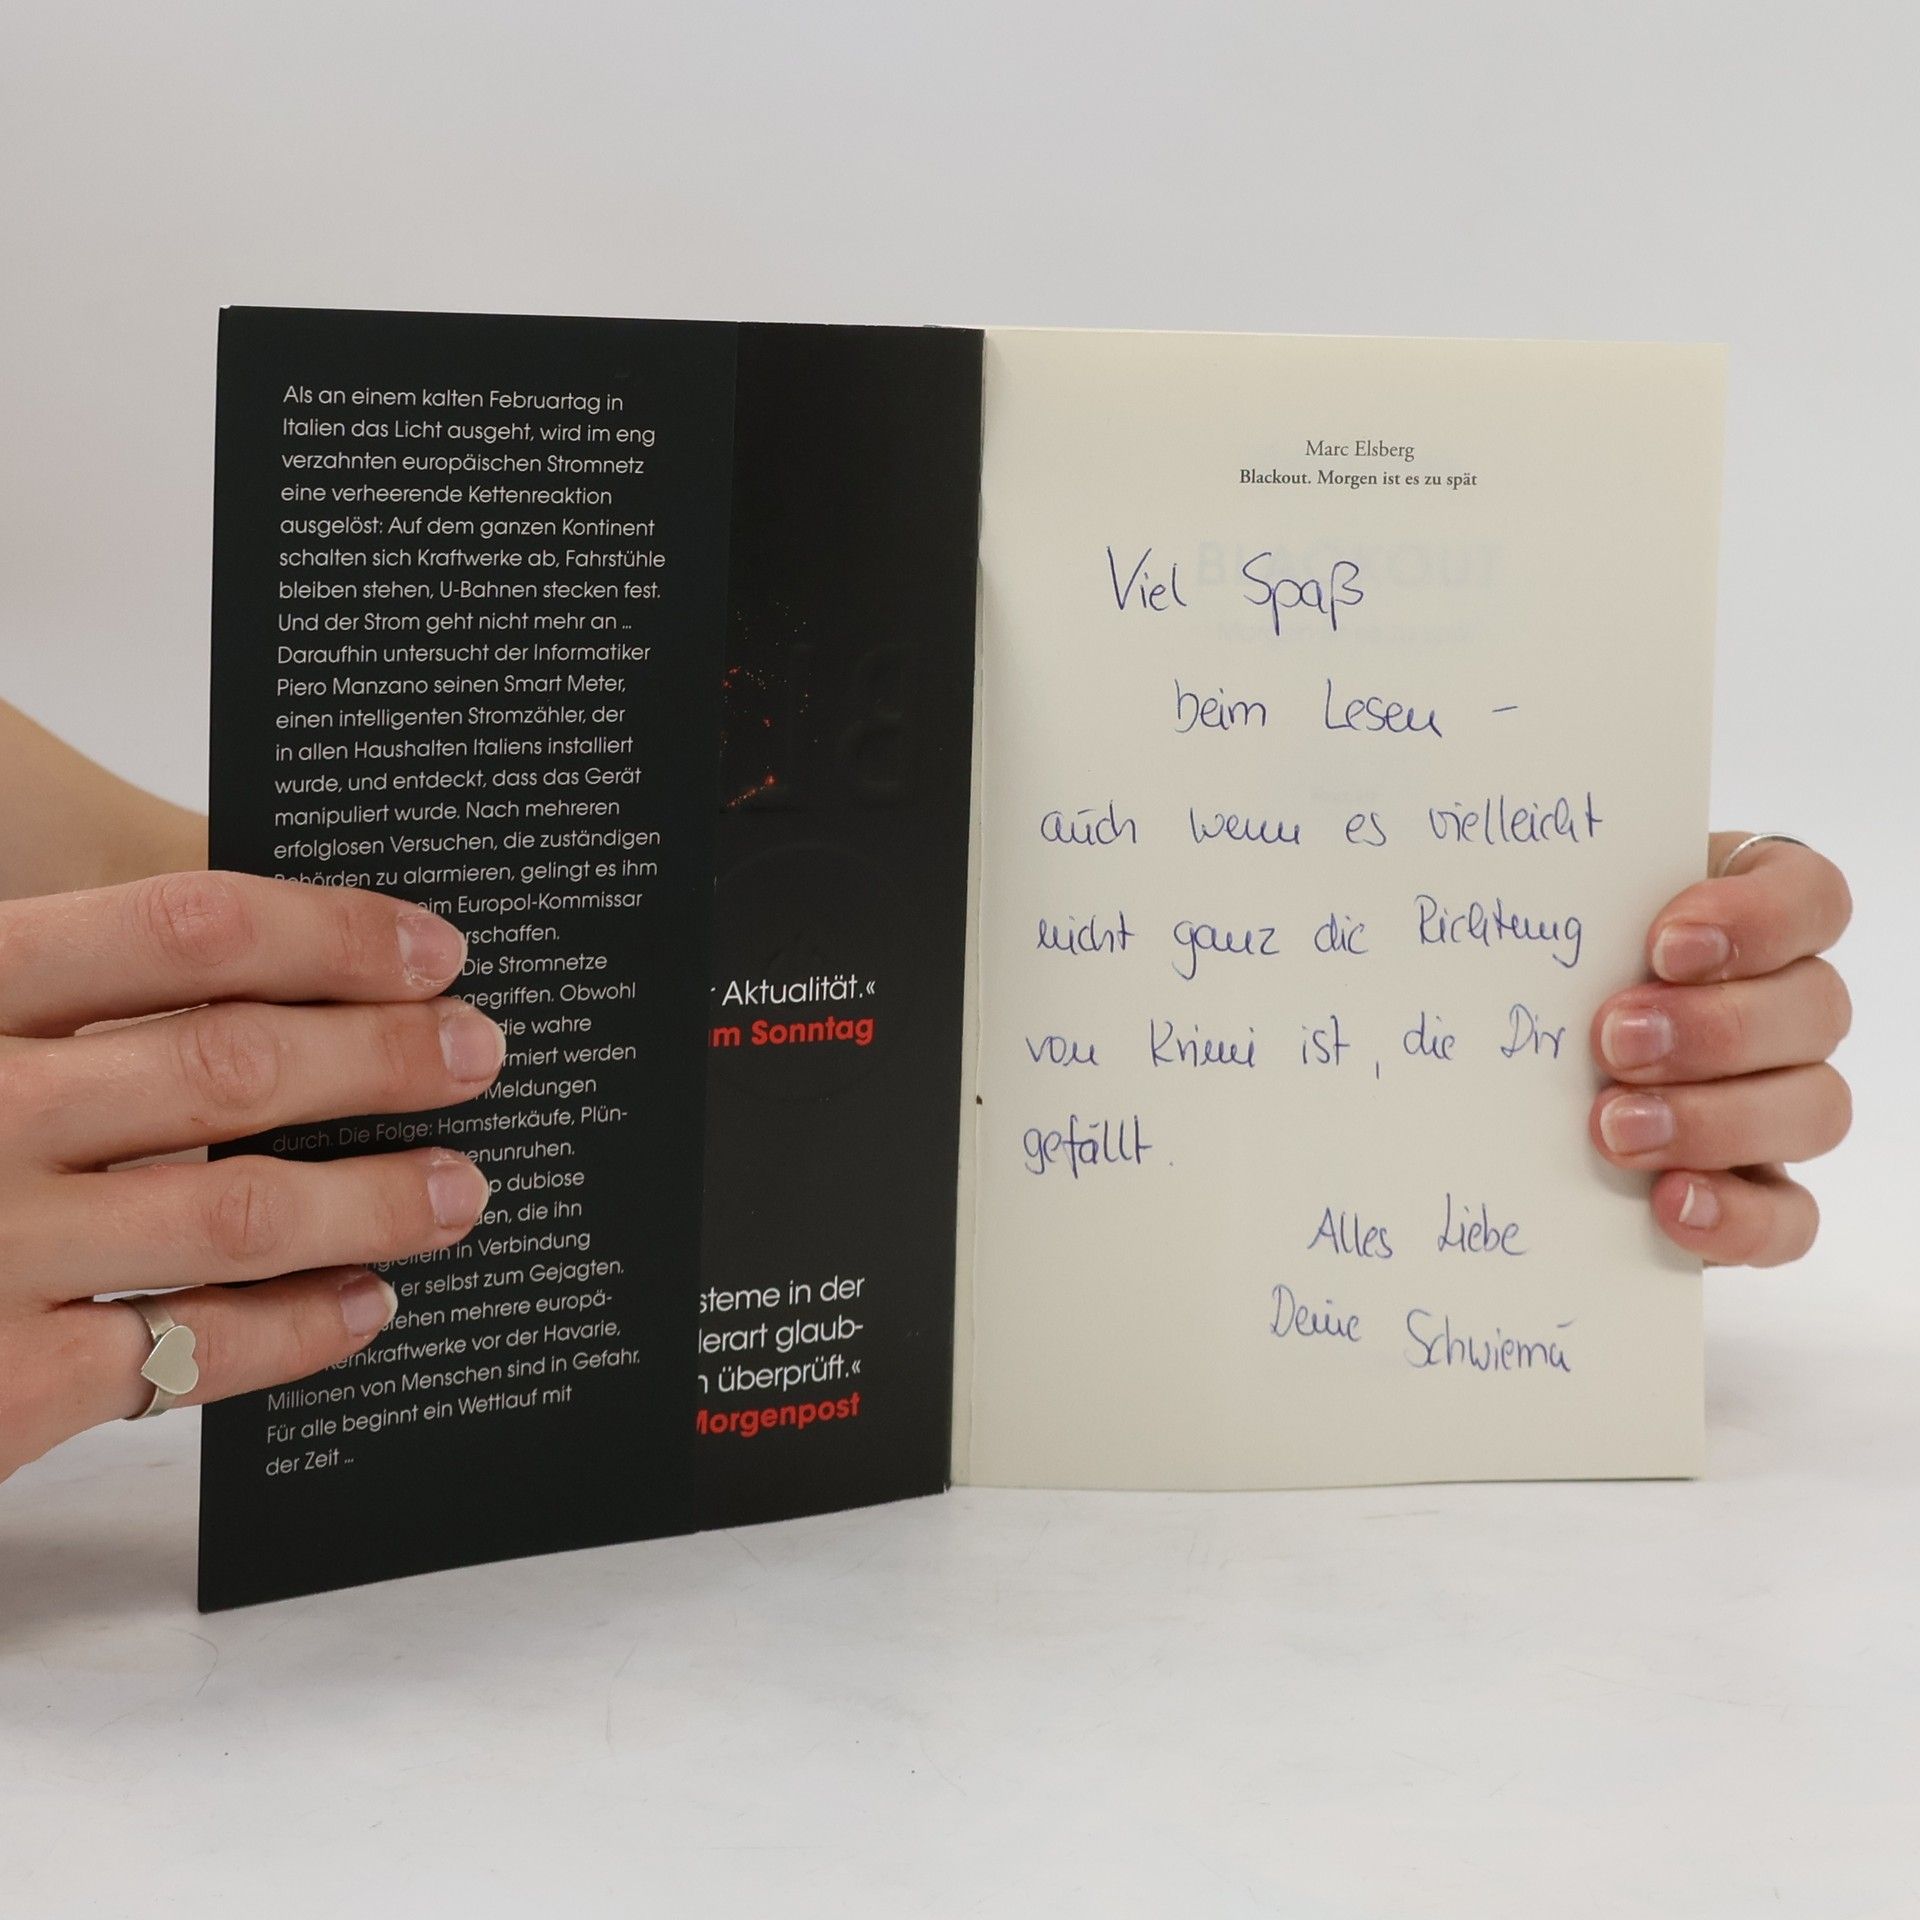 Als an einem kalten Februartag in
Italien das Licht ausgeht, wird im eng
verzahnten europäischen Stromnetz
eine verheerende Kettenreaktion
ausgelöst: Auf dem ganzen Kontinent
schalten sich Kraftwerke ab, Fahrstühle
bleiben stehen, U-Bahnen stecken fest.
Und der Strom geht nicht mehr an ...
Daraufhin untersucht der Informatiker
Piero Manzano seinen Smart Meter,
einen intelligenten Stromzähler, der
in allen Haushalten Italiens installiert
wurde, und entdeckt, dass das Gerät
manipuliert wurde. Nach mehreren
erfolglosen Versuchen, die zuständigen
Behörden zu alarmieren, gelingt es ihm
Europol-Kommissar
rschaffen.
Die Stromnetze
gegriffen. Obwohl
die wahre
rmiert werden
Meldungen
durch. Die Folge: Hamsterkäufe, Plün-
enunruhen.
dubiose
den, die ihn
in Verbindung
er selbst zum Gejagten.
stehen mehrere europä-
ernkraftwerke vor der Havarie,
Millionen von Menschen sind in Gefahr.
Für alle beginnt ein Wettlauf mit
der Zeit ...
Aktualität.«
m Sonntag
steme in der
derart glaub-
überprüft.«
Morgenpost
Marc Elsberg
Blackout. Morgen ist es zu spät
Viel Spaß
beim Lesen –
auch wenn es vielleicht
nicht ganz die Richtung
von Krimi ist, die Dir
gefällt.
Alles Liebe
Deine Schwiema